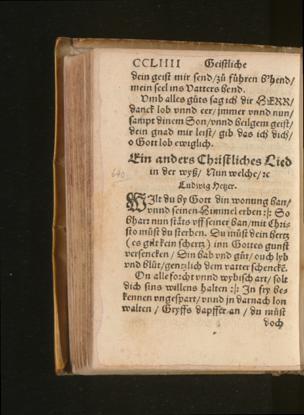 CCLIIII Geistliche
dein geist mir send/zů führen bhend/
mein seel ins Vatters hend.
Umb alles gůts sag ich dir HERR/
danck lob vnnd eer/immer vnnd nun/
sampt dinem Son/vnnd heilgem geist/
dein gnad mir leist/gib das ich dich/
o Gott lob ewiglich.
Ein anders Christliches Lied
in der wyß/Nun welche/ꝛc
Ludwig Hetzer.
WIlt du by Gott din wonung han/
vnnd seinen Himmel erben :|: So
bharr nun stäts vff seiner ban/mit Chri-
sto můst du sterben. Du můst dein hertz
(es gilt kein schertz) inn Gottes gunst
versencken/Din hab vnd gůt/ouch lyb
vnd blůt/gentzlich dem vatter schencke.
On alle forcht vnnd wybisch art/solt
dich sins willens halten :|: In fry be-
kennen vngespart/vnnd in darnach lon
walten/Gryffs dapffer an/du můst
doch
640.